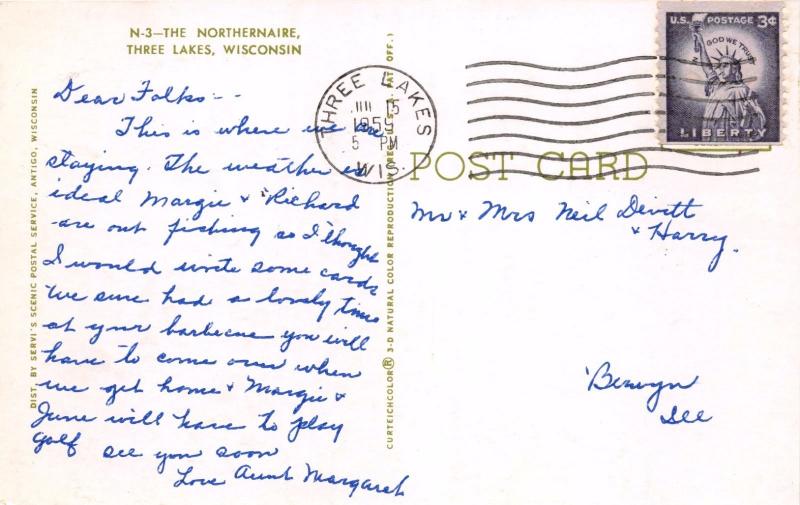 N-3—THE NORTHERNAIRE,
THREE LAKES, WISCONSIN
Dear Folks--
This is where we are
staying. The weather is
ideal Margie & Richard
are out fishing so I thought
I would write some cards
We sure had a lovely time
at your barbecue you will
have to come over when
we get home & Margie &
June will have to play
golf see you soon
Love Aunt Margaret
DIST. BY SERVI'S SCENIC POSTAL SERVICE, ANTIGO, WISCONSIN
CURTEICHCOLOR® 3-D NATURAL COLOR REPRODUCTION (REG. U.S. PAT. OFF.)
THREE LAKES
15
195
5 PM
WIS.
U.S. POSTAGE 3¢
IN GOD WE TRUST
LIBERTY
POST CARD
Mr & Mrs Neil Devitt
& Harry.
Berwyn
Ill